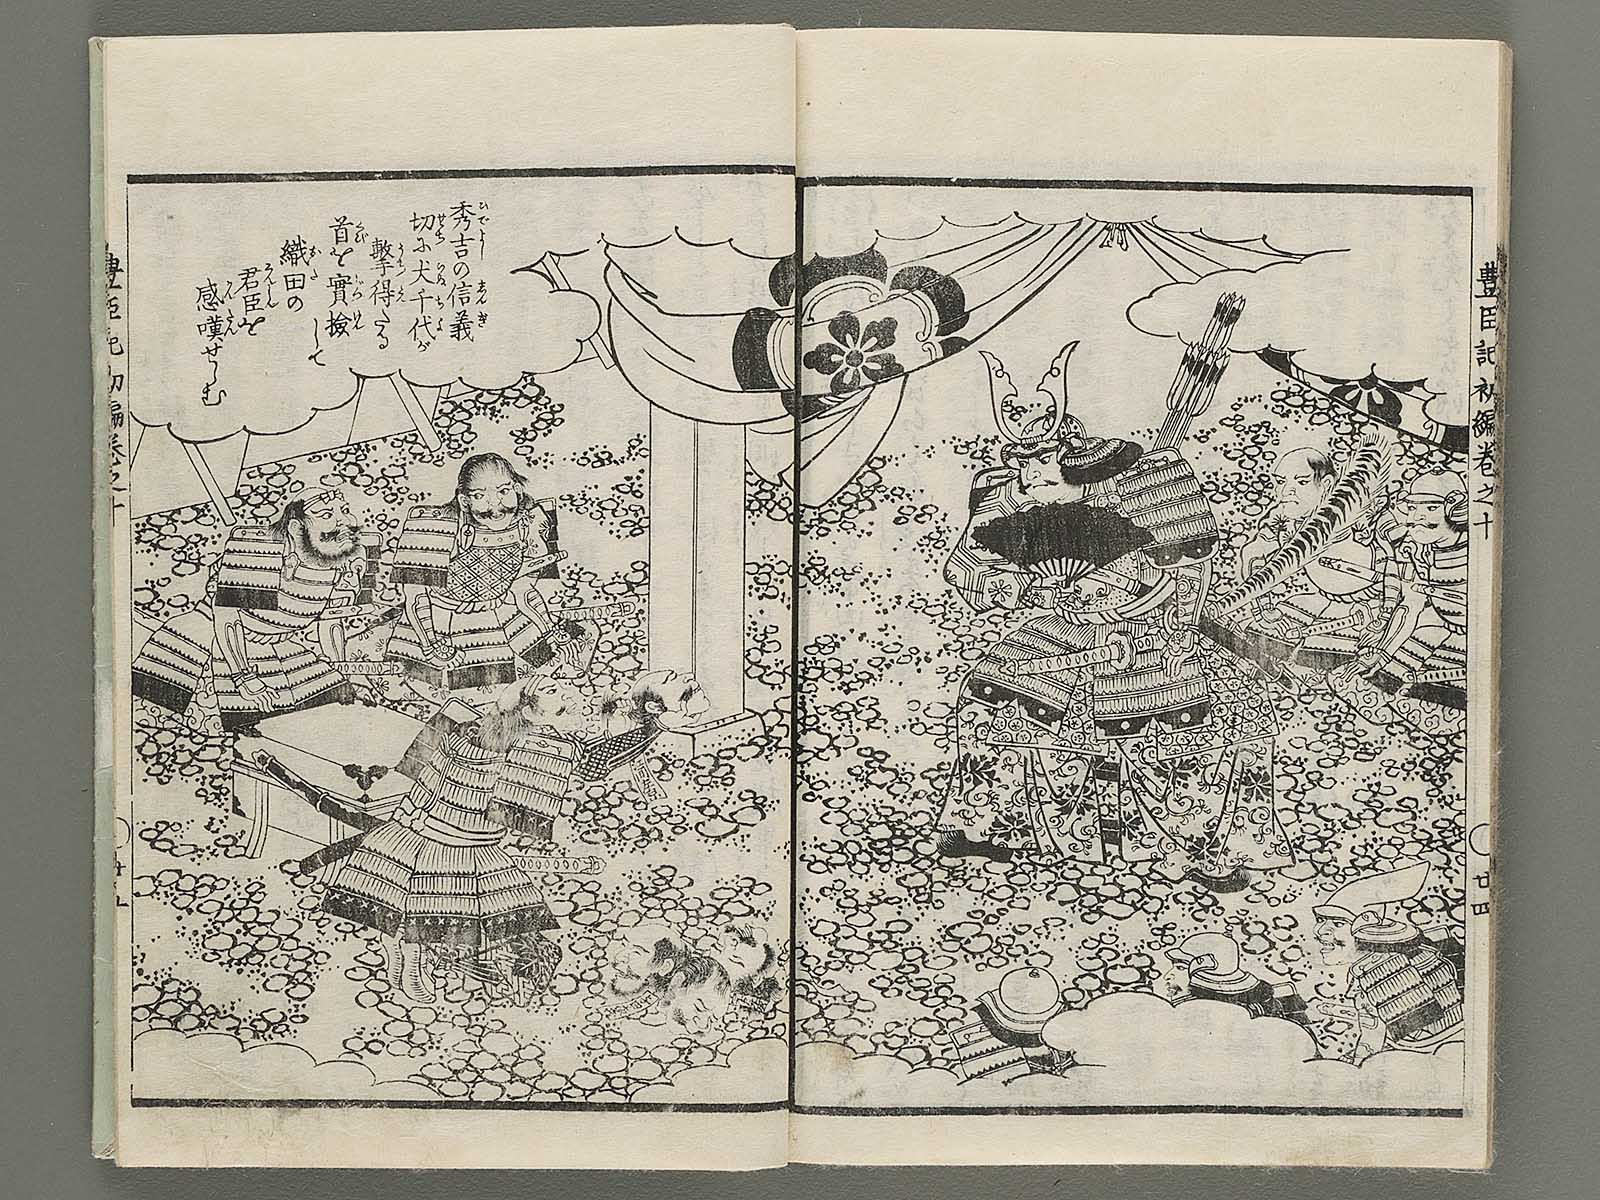 豊臣記初編巻之十
〇廿四
秀吉の信義
切に犬千代が
撃得たる
首を實撿
して
織田の
君臣を
感嘆せしむ
豊臣記初編巻之十